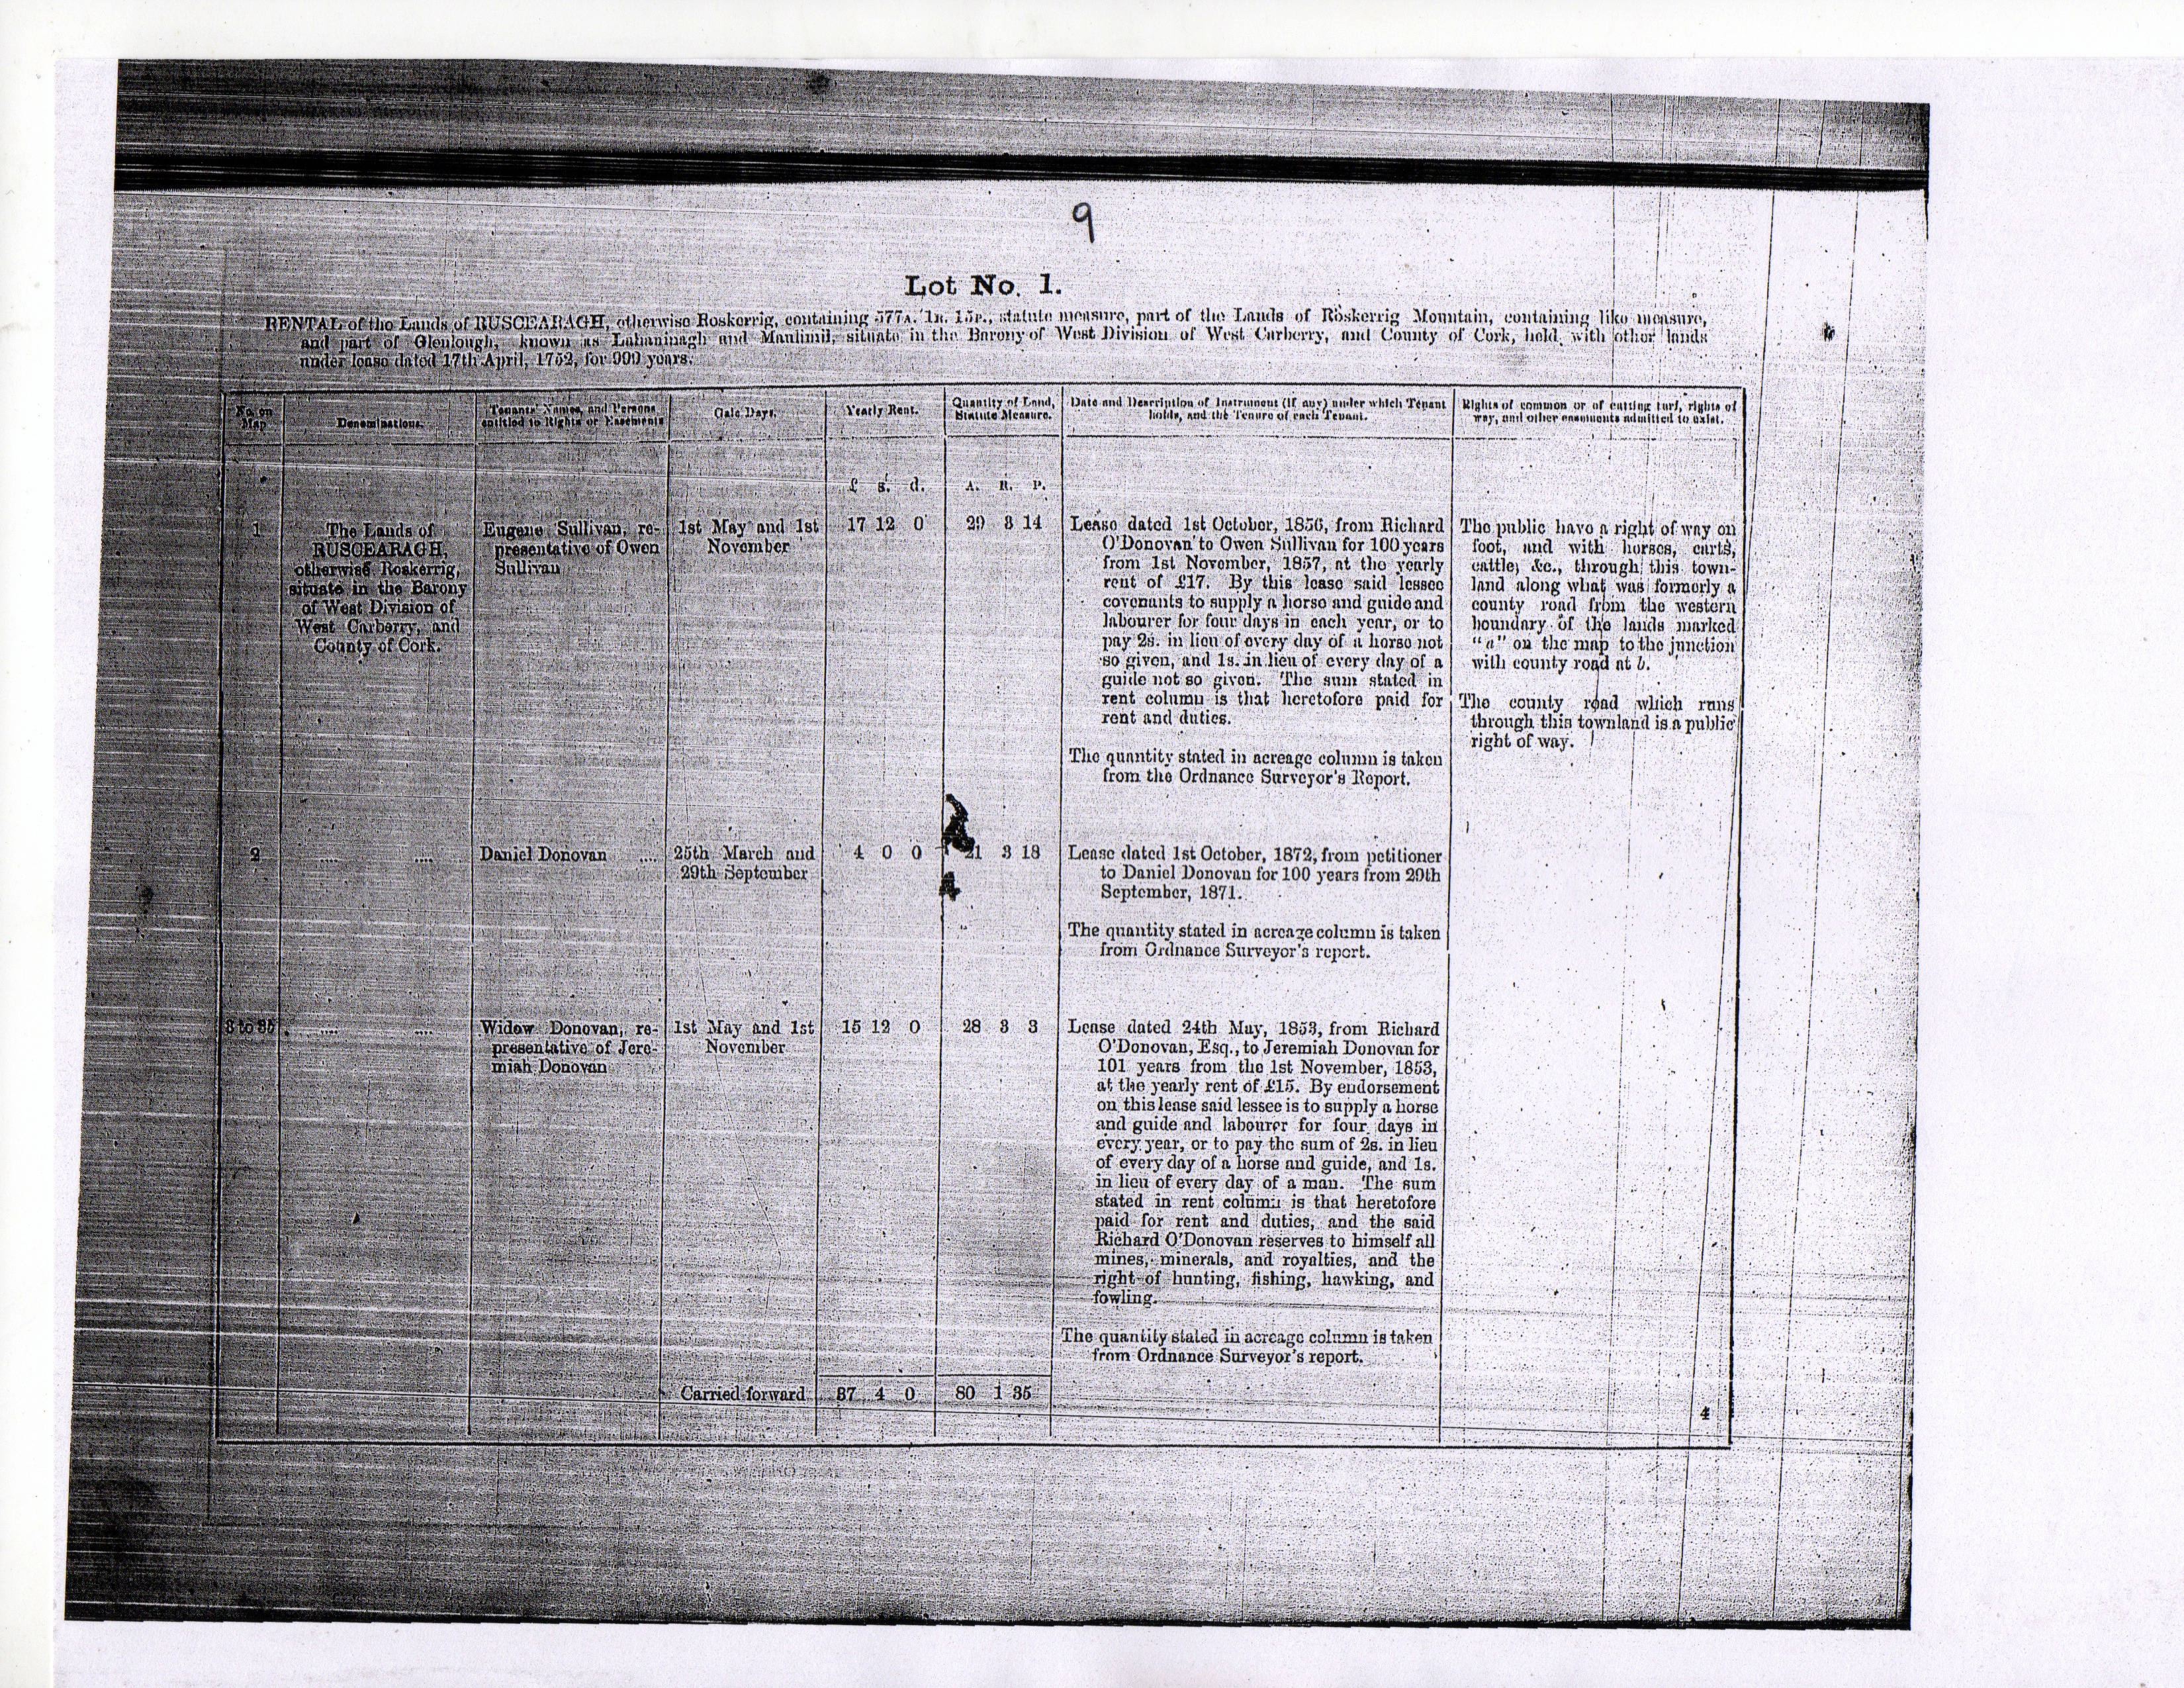 9
Lot No. 1.
RENTAL of the Lands of RUSCEARAGH, otherwise Roskerrig, containing 577A. 1R. 15P., statute measure, part of the Lands of Roskerrig Mountain, containing like measure,
and part of Glenlough, known as Lahaninagh and Maulinil, situate in the Barony of West Division of West Carberry, and County of Cork, held with other lands
under lease dated 17th April, 1752, for 999 years.
No. on Map
Denominations.
Tenants' Names, and Persons
entitled to Rights or Easements
Gale Days.
Yearly Rent.
Quantity of Land,
Statute Measure.
Date and Description of Instrument (if any) under which Tenant
holds, and the Tenure of each Tenant.
Rights of common or of cutting turf, rights of
way, and other easements admitted to exist.
£ s. d.
A. R. P.
1
The Lands of
RUSCEARAGH,
otherwise Roskerrig,
situate in the Barony
of West Division of
West Carberry, and
County of Cork.
Eugene Sullivan, re-
presentative of Owen
Sullivan
1st May and 1st
November
17 12 0
29 3 14
Lease dated 1st October, 1856, from Richard
O'Donovan to Owen Sullivan for 100 years
from 1st November, 1857, at the yearly
rent of £17. By this lease said lessee
covenants to supply a horse and guide and
labourer for four days in each year, or to
pay 2s. in lieu of every day of a horse not
so given, and 1s. in lieu of every day of a
guide not so given. The sum stated in
rent column is that heretofore paid for
rent and duties.
The quantity stated in acreage column is taken
from the Ordnance Surveyor's Report.
The public have a right of way on
foot, and with horses, carts,
cattle, &c., through this town-
land along what was formerly a
county road from the western
boundary of the lands marked
"a" on the map to the junction
with county road at b.
The county road which runs
through this townland is a public
right of way.
2
.... ....
Daniel Donovan ....
25th March and
29th September
4 0 0
21 3 18
Lease dated 1st October, 1872, from petitioner
to Daniel Donovan for 100 years from 29th
September, 1871.
The quantity stated in acreage column is taken
from Ordnance Surveyor's report.
.... ....
Widow Donovan, re-
presentative of Jere-
miah Donovan
1st May and 1st
November
15 12 0
28 3 3
Lease dated 24th May, 1853, from Richard
O'Donovan, Esq., to Jeremiah Donovan for
101 years from the 1st November, 1853,
at the yearly rent of £15. By endorsement
on this lease said lessee is to supply a horse
and guide and labourer for four days in
every year, or to pay the sum of 2s. in lieu
of every day of a horse and guide, and 1s.
in lieu of every day of a man. The sum
stated in rent column is that heretofore
paid for rent and duties, and the said
Richard O'Donovan reserves to himself all
mines, minerals, and royalties, and the
right of hunting, fishing, hawking, and
fowling.
The quantity stated in acreage column is taken
from Ordnance Surveyor's report.
Carried forward
37 4 0
80 1 35
4